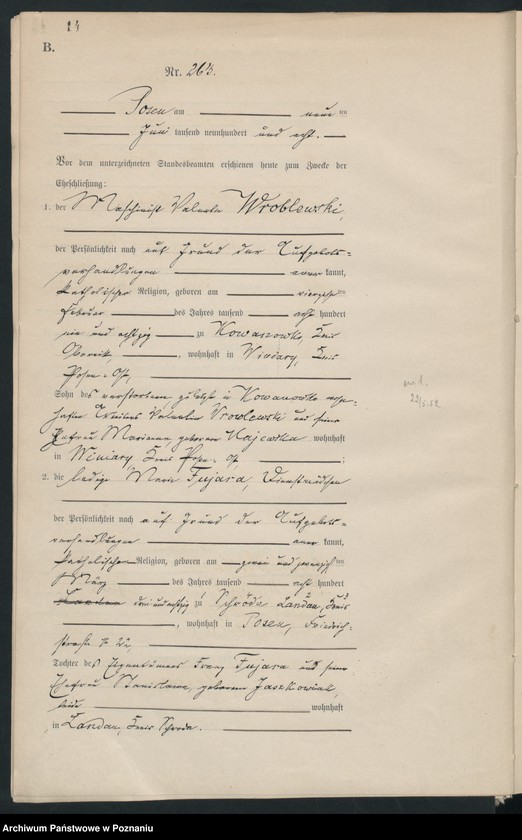 14
B.
Nr. 263.
Posen am neun ten
Juni tausend neunhundert und acht.
Vor dem unterzeichneten Standesbeamten erschienen heute zum Zwecke der
Eheschließung:
1. der Maschinist Valentin Wroblewski,
der Persönlichkeit nach auf Grund der Aufgebots=
verhandlungen anerkannt,
katholischer Religion, geboren am vierzehnten
Februar des Jahres tausend acht hundert
und achtzig zu Kowanowko, Kreis
Obornik, wohnhaft in Winiary, Kreis
Posen-Ost,
Sohn des verstorbenen zuletzt in Kowanowko wohn=
haften Valentin Wroblewski und seiner
Ehefrau Marianna, geborenen Majewska wohnhaft
in Winiary, Kreis Posen-Ost;
2. die ledige Maria Fujara, Dienstmädchen
der Persönlichkeit nach auf Grund der Aufgebots=
verhandlungen anerkannt,
katholischer Religion, geboren am zwei und zwanzigsten
März des Jahres tausend acht hundert
drei und achtzig zu Landau, Kreis
Schroda, wohnhaft in Posen, Friedrich=
straße 22,
Tochter des Eigentümers Franz Fujara und seiner
Ehefrau Stanislawa, geborenen Jaszkowiak,
beide wohnhaft
in Landau, Kreis Schroda.
Archiwum Państwowe w Poznaniu